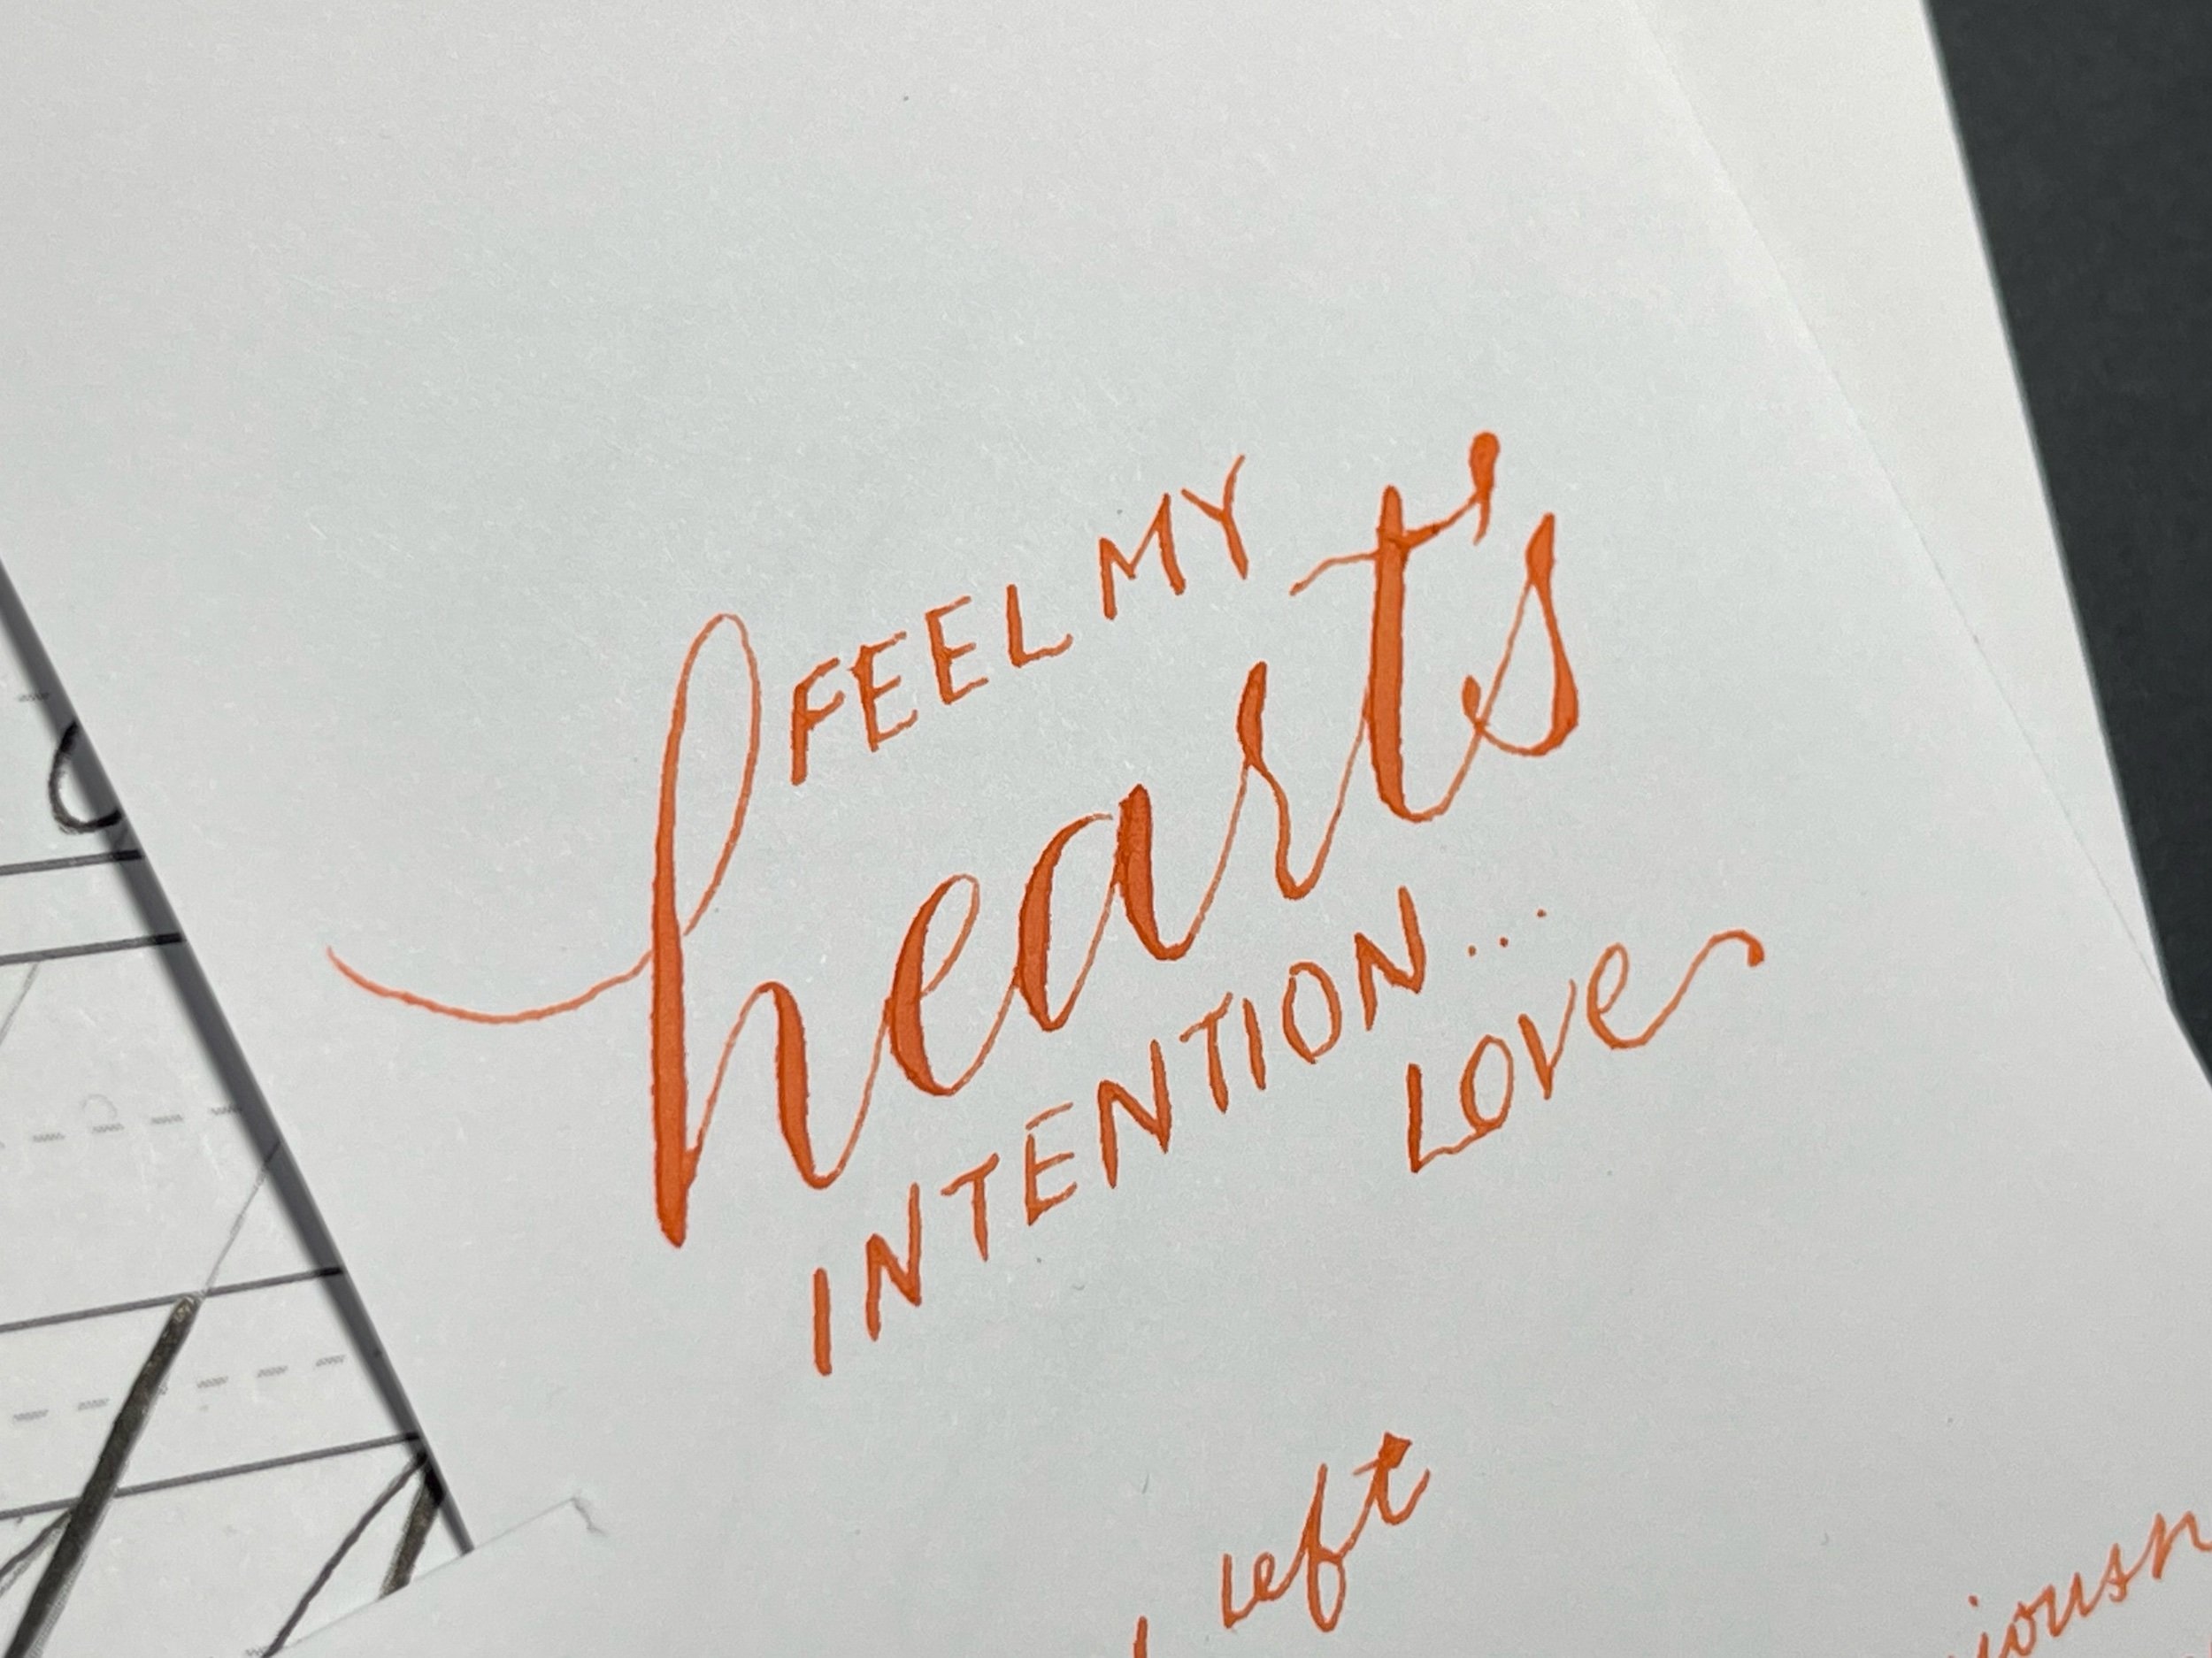 FEEL MY
heart's
INTENTION...
LOVE
left